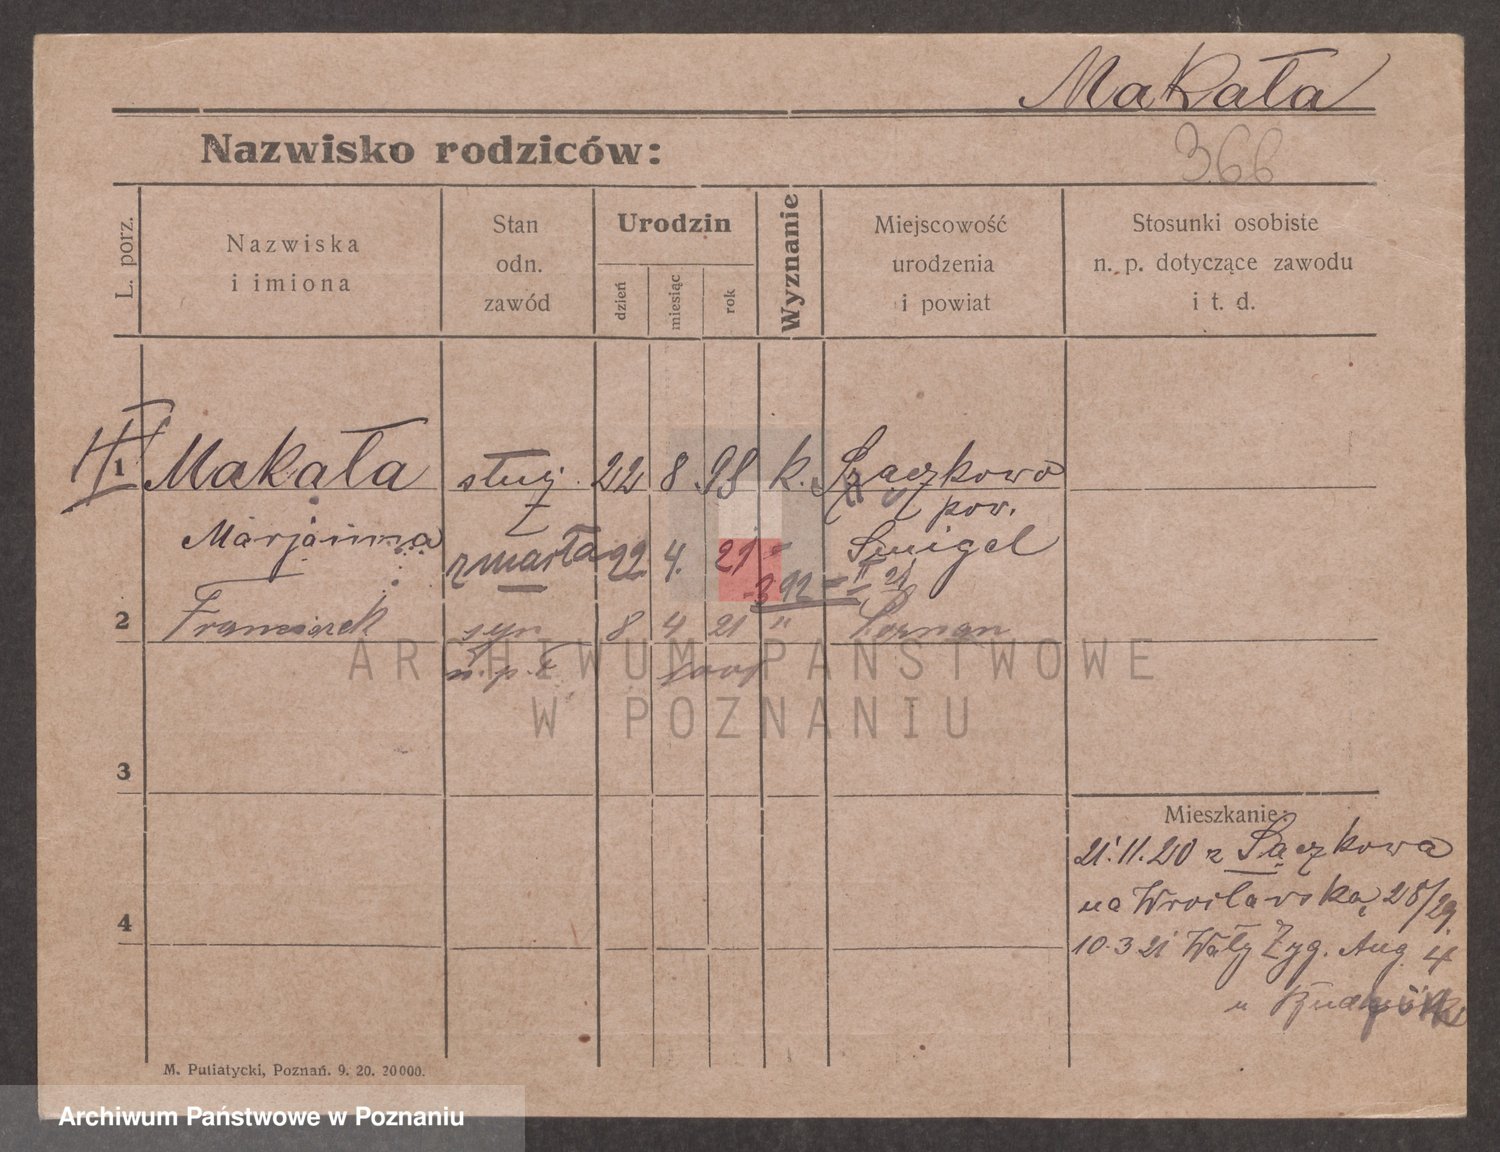 Makała
Nazwisko rodziców:
366
L. porz.
Nazwiska
i imiona
Stan
odn.
zawód
Urodzin
dzień
miesiąc
rok
Wyznanie
Miejscowość
urodzenia
i powiat
Stosunki osobiste
n. p. dotyczące zawodu
i t. d.
1 Makała służ. 22 8 98 k. Sączkowo
pow.
Marjanna Śmigel
zmarła 22 4. 21
392
2 Franciszek syn 8 4 21 " Poznan
ARCHIWUM PAŃSTWOWE
W POZNANIU
3
Mieszkanie:
21.11.20 z Sączkowa
na Wrocławską 28/29.
4
10.3 21 Wały Zyg. Aug 4
u
M. Putiatycki, Poznań. 9. 20. 20000.
Archiwum Państwowe w Poznaniu